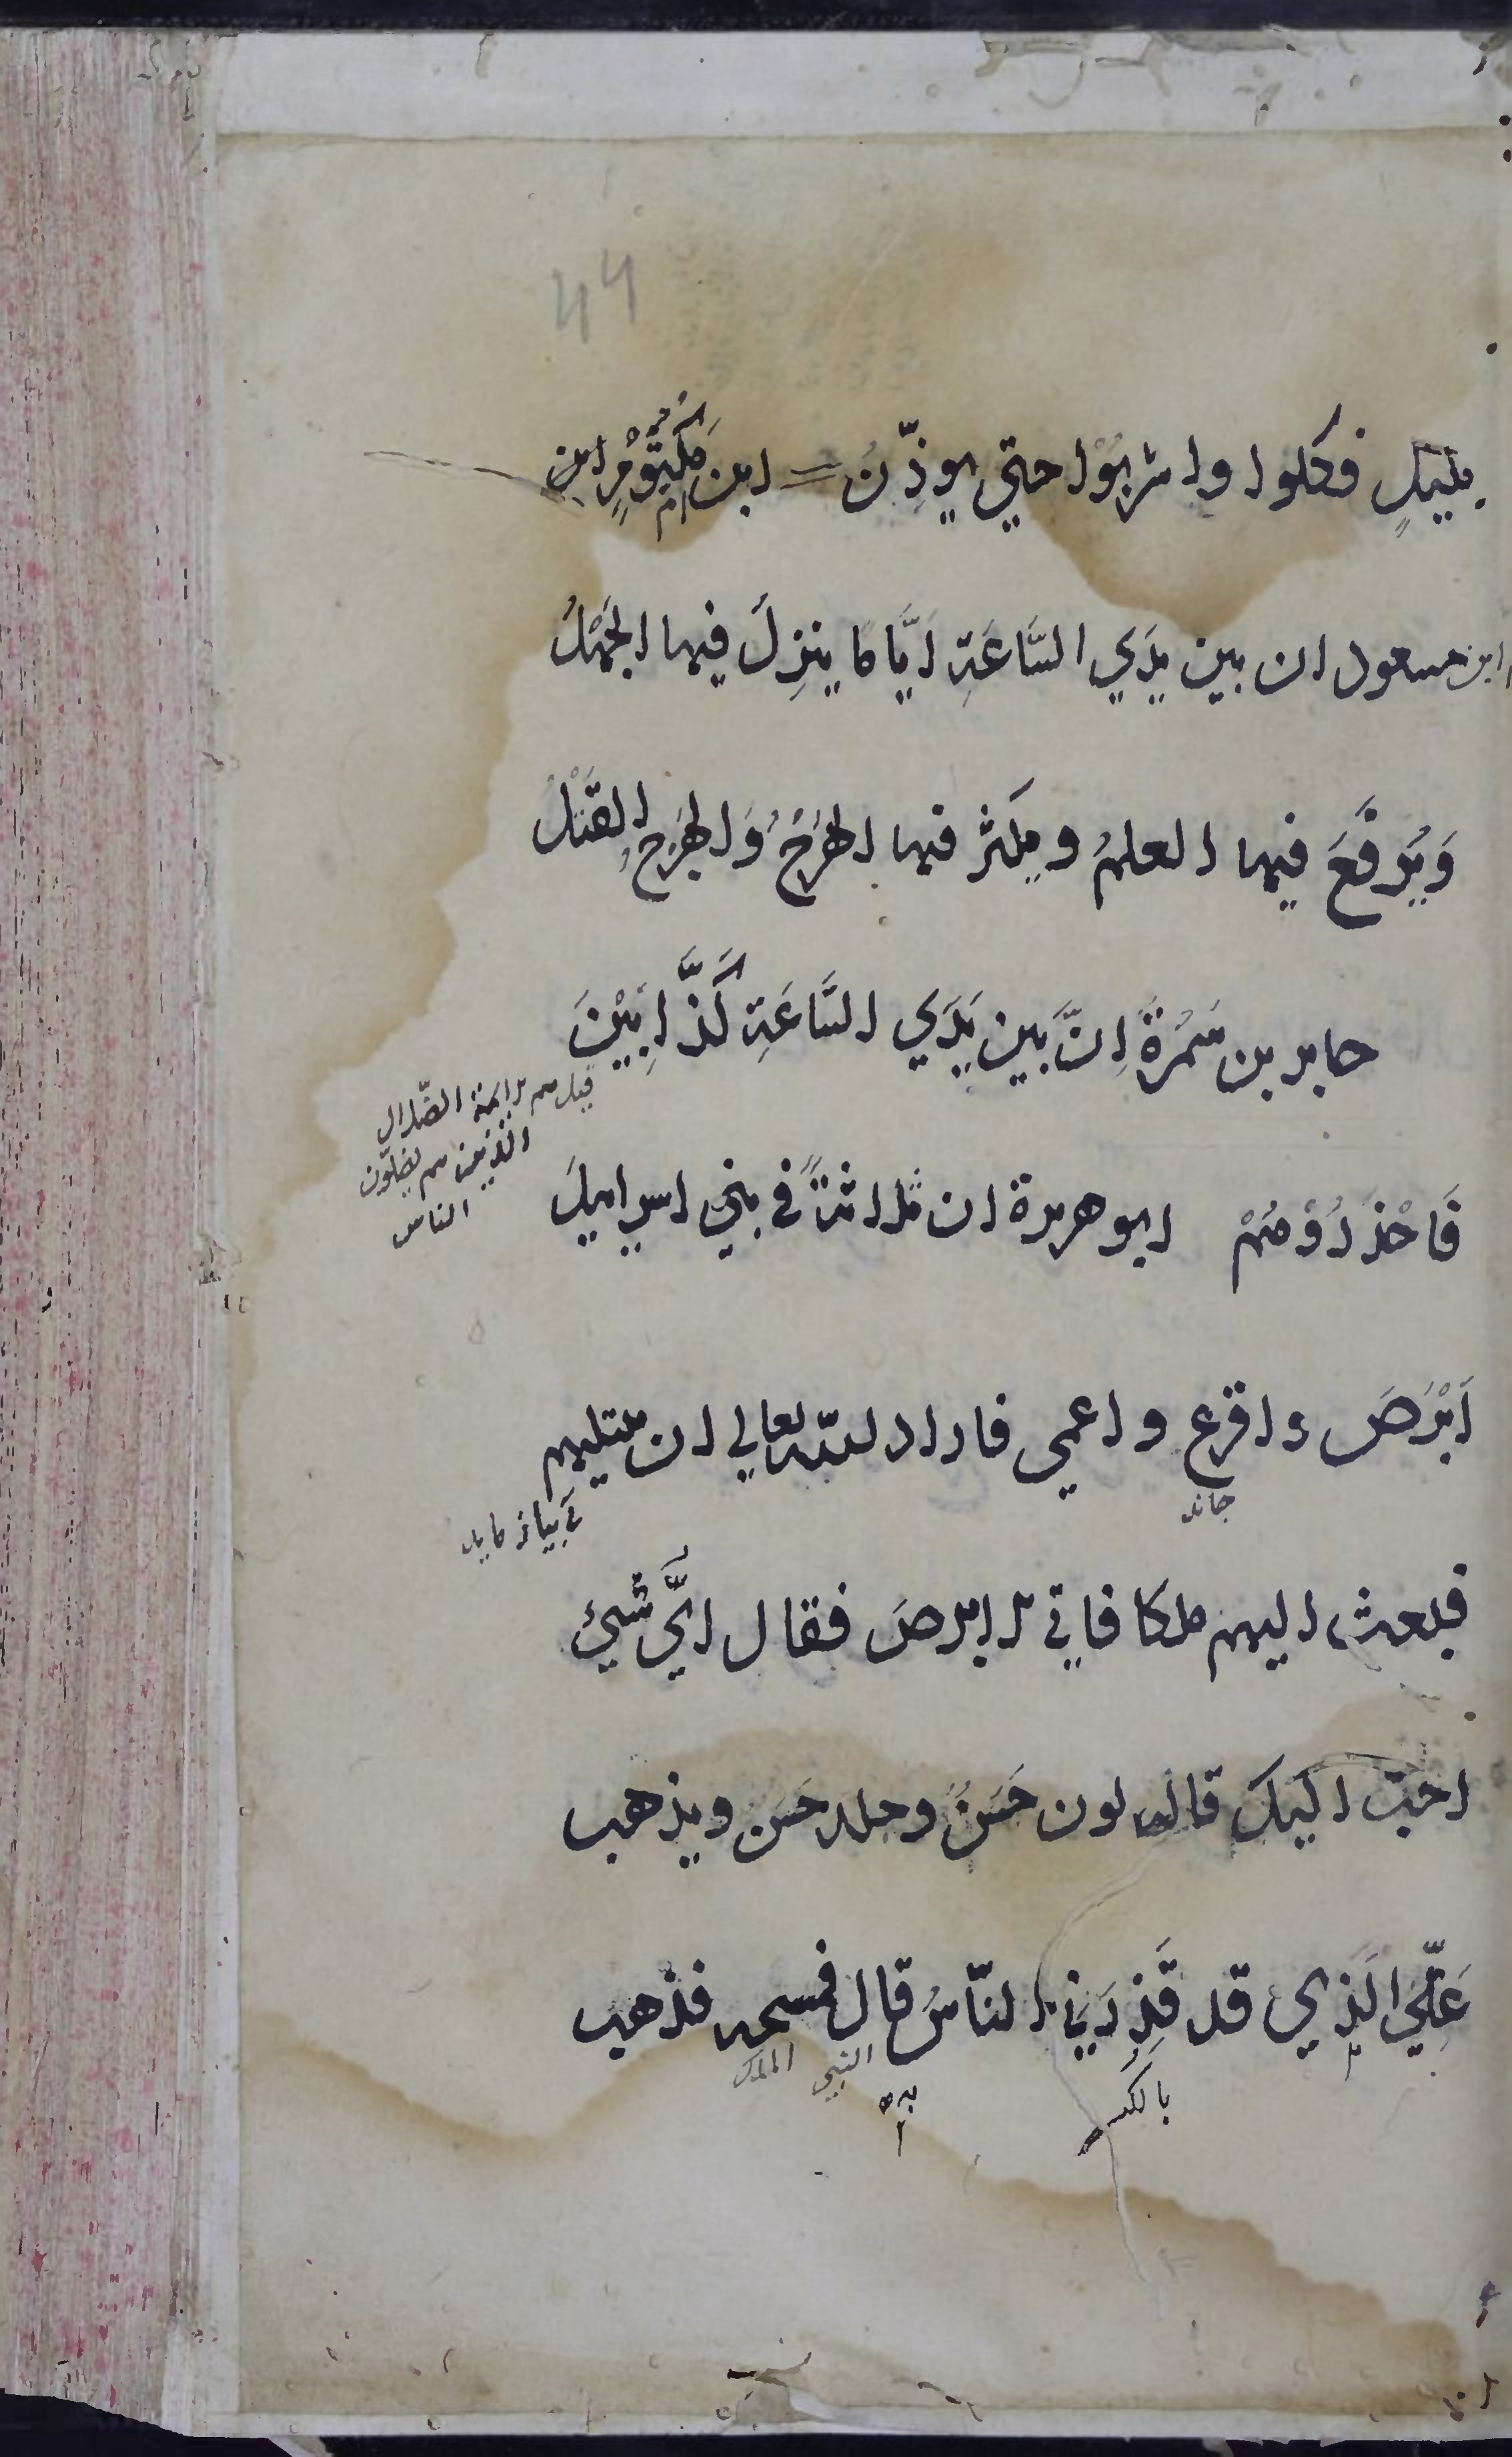 44
بليلٍ فكلوا واشربُوْا حتي يوذّنَ ابن مَكْتُوْمٍ ابن
ابن مسعود ان بين يدَي السَّاعَةِ ايَّاما ينزِلُ فيها الجَهْلُ
وَيُرفَعَ فيها العلمُ ويكثر فيها الهَرَجُ وَالهَرَجُ القَتْلُ
جابر بن سَمُرَةَ اِنَّ بين يَدَي السَّاعَةِ كَذَّابِيْنَ
قيل هم الايمة الضّلال
الذين هم يضلّون
الناس
فَاحْذَرُوْهُمْ ابو هريرة ان ثلاثةً في بني اسراييلَ
اَبْرَصَ واقرع واعمي فاراد اللّه تعالي ان يبتليهم
فبعث اليهم ملكا فاتي الابرصَ فقال ايُّ شيئ
احبّ اليك قال لون حَسَنٌ وجلد حَسَن ويذهب
عَنِّي الَذِي قد قَذِرَنِي النّاسُ قال فمسحه فذهب
النبي الملك
بالكسر